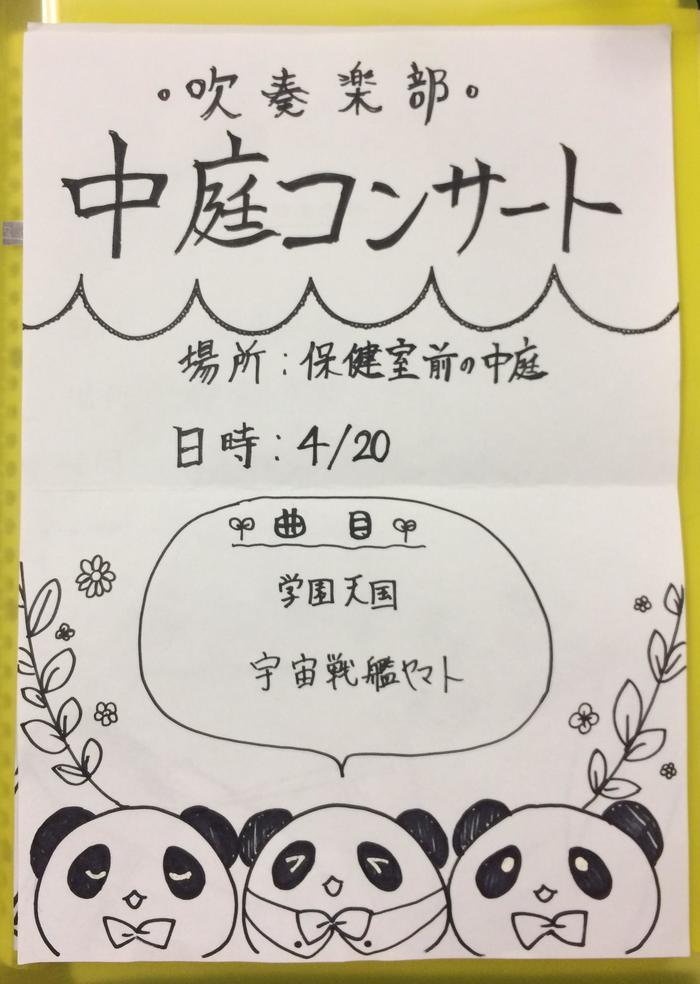 ・吹奏楽部・
中庭コンサート
場所:保健室前の中庭
日時:4/20
曲目
学園天国
宇宙戦艦ヤマト